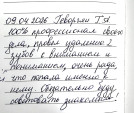 09.04.2026 Геворгян Т.А
100% профессионал своего
дела, провёл удаление 2
зубов с вниманием и
пониманием, очень рада,
что попала именно к
нему. Обязательно буду
советовать знакомым